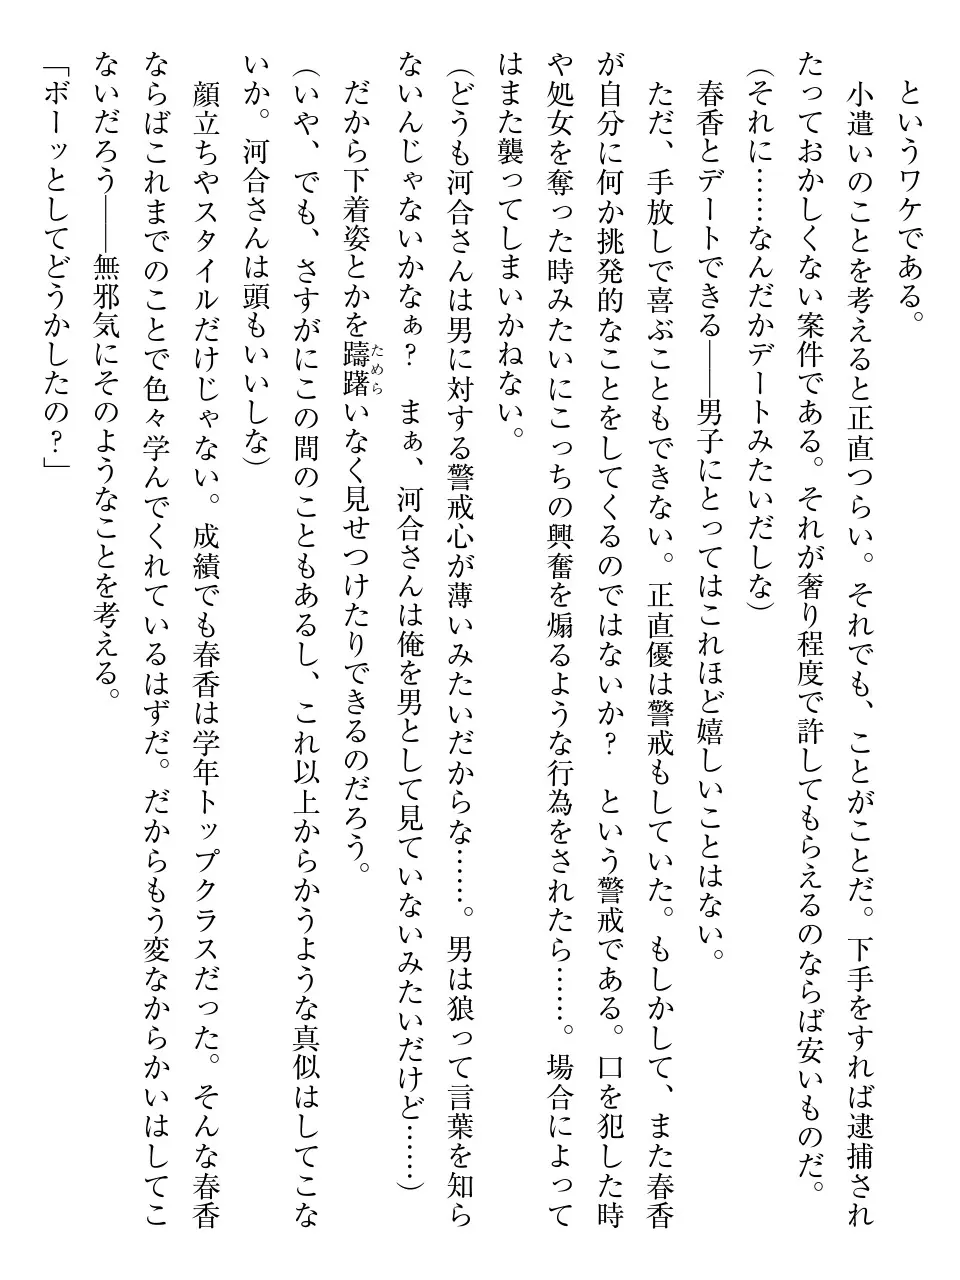 というワケである。
小遣いのことを考えると正直つらい。それでも、ことがことだ。下手をすれば逮捕され
たっておかしくない案件である。それが奢り程度で許してもらえるのならば安いものだ。
(それに……なんだかデートみたいだしな)
春香とデートできる――男子にとってはこれほど嬉しいことはない。
ただ、手放しで喜ぶこともできない。正直優は警戒もしていた。もしかして、また春香
が自分に何か挑発的なことをしてくるのではないか？　という警戒である。口を犯した時
や処女を奪った時みたいにこっちの興奮を煽るような行為をされたら……。場合によって
はまた襲ってしまいかねない。
(どうも河合さんは男に対する警戒心が薄いみたいだからな……。男は狼って言葉を知ら
ないんじゃないかなぁ？　まぁ、河合さんは俺を男として見ていないみたいだけど……)
だから下着姿とかを躊躇いなく見せつけたりできるのだろう。
(いや、でも、さすがにこの間のこともあるし、これ以上からかうような真似はしてこな
いか。河合さんは頭もいいしな)
顔立ちやスタイルだけじゃない。成績でも春香は学年トップクラスだった。そんな春香
ならばこれまでのことで色々学んでくれているはずだ。だからもう変なからかいはしてこ
ないだろう――無邪気にそのようなことを考える。
「ボーッとしてどうかしたの？」